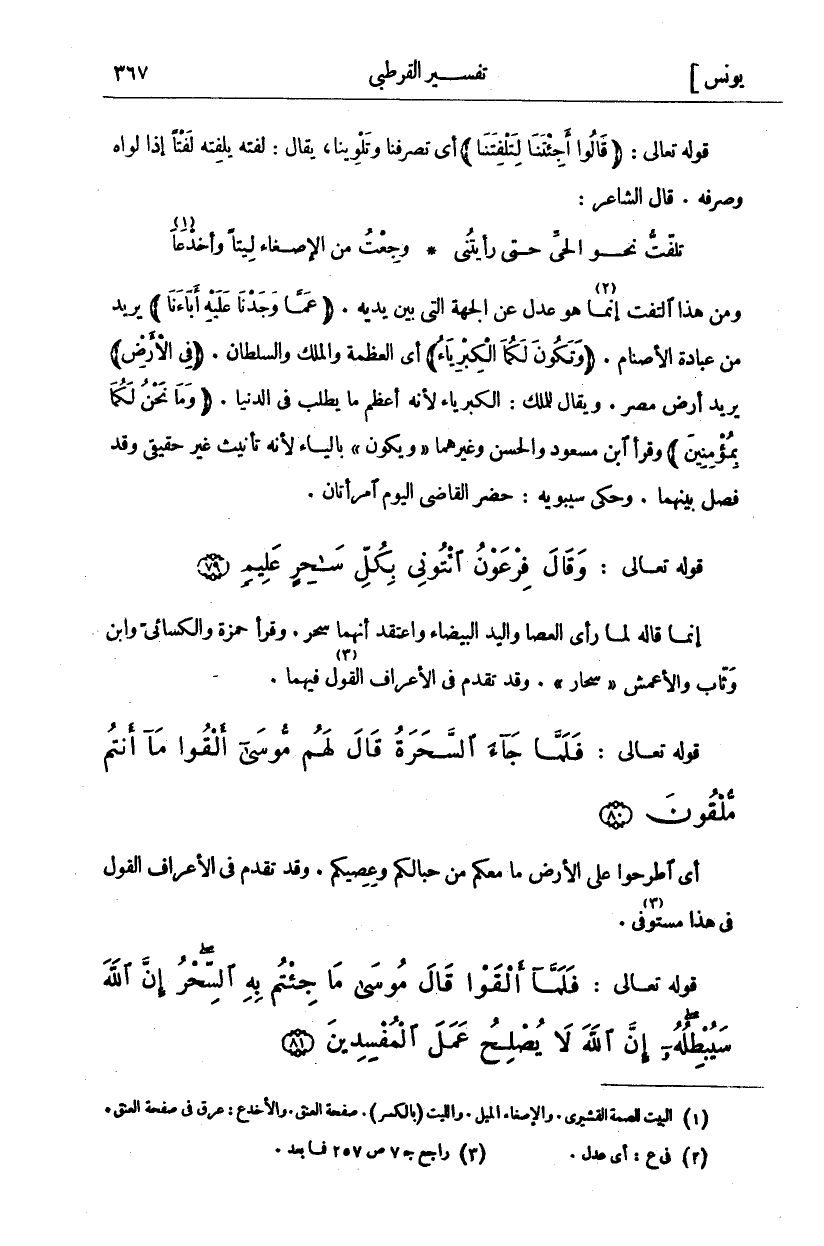 يونس ] تفســـير القرطبى ٣٦٧
قوله تعالى : ﴿ قَالُوا أَجِئْتَنَا لِتَلْفِتَنَا ﴾ أى تصرفنا وتَلْوِينا، يقال : لفته يلفِته لَفْتاً إذا لواه
وصرفه . قال الشاعر :
تلفّتُّ نحــو الحىِّ حــتى رأيتُنى * وجِعْتُ من الإصغاء لِيتاً وأخدَعَا (١)
ومن هذا ٱلتفت إنما (٢) هو عدل عن الجهة التى بين يديه . ﴿ عَمَّا وَجَدْنَا عَلَيْهِ أَبَاءَنَا ﴾ يريد
من عبادة الأصنام . ﴿وَتَكُونَ لَكُمَا الْكِبْرِيَاءُ﴾ أى العظمة والملك والسلطان . ﴿فِى الْأَرْضِ﴾
يريد أرض مصر . ويقال للملك : الكبرياء لأنه أعظم ما يطلب فى الدنيا . ﴿ وَمَا نَحْنُ لَكُمَا
بِمُؤْمِنِينَ ﴾ وقرأ ٱبن مسعود والحسن وغيرهما « ويكون » باليــاء لأنه تأنيث غير حقيقى وقد
فصل بينهما . وحكى سيبويه : حضر القاضى اليوم ٱمرأتان .
قوله تعـالى : وَقَالَ فِرْعَوْنُ ٱئْتُونِى بِكُلِّ سَـٰحِرٍ عَلِيمٍ ﴿٧٩﴾
إنمـا قاله لمـا رأى العصا واليد البيضاء واعتقد أنهما سحر . وقرأ حمزة والكسائىّ وابن
وَثّاب والأعمش « سحار » . وقد تقدم فى الأعراف القول فيهما (٣) .
قوله تعـالى : فَلَمَّـا جَآءَ ٱلسَّـحَرَةُ قَالَ لَهُم مُّوسَىٰٓ أَلْقُوا مَآ أَنتُم
مُّلْقُونَ ﴿٨٠﴾
أى ٱطرحوا على الأرض ما معكم من حبالكم وعِصِيكم . وقد تقدم فى الأعراف القول
فى هذا مستوفى (٣) .
قوله تعـالى : فَلَمَّـآ أَلْقَوْا قَالَ مُوسَىٰ مَا جِئْتُم بِهِ ٱلسِّحْرُ إِنَّ ٱللَّهَ
سَيُبْطِلُهُۥٓ إِنَّ ٱللَّهَ لَا يُصْلِحُ عَمَلَ ٱلْمُفْسِدِينَ ﴿٨١﴾
(١) البيت للصمة القشيرى . والإصغاء الميل . والليت (بالكسر) . صفحة العنق . والأخدع : عرق فى صفحة العنق .
(٢) فى ع : أى عدل . (٣) راجع جـ ٧ ص ٢٥٧ فـا بعد .